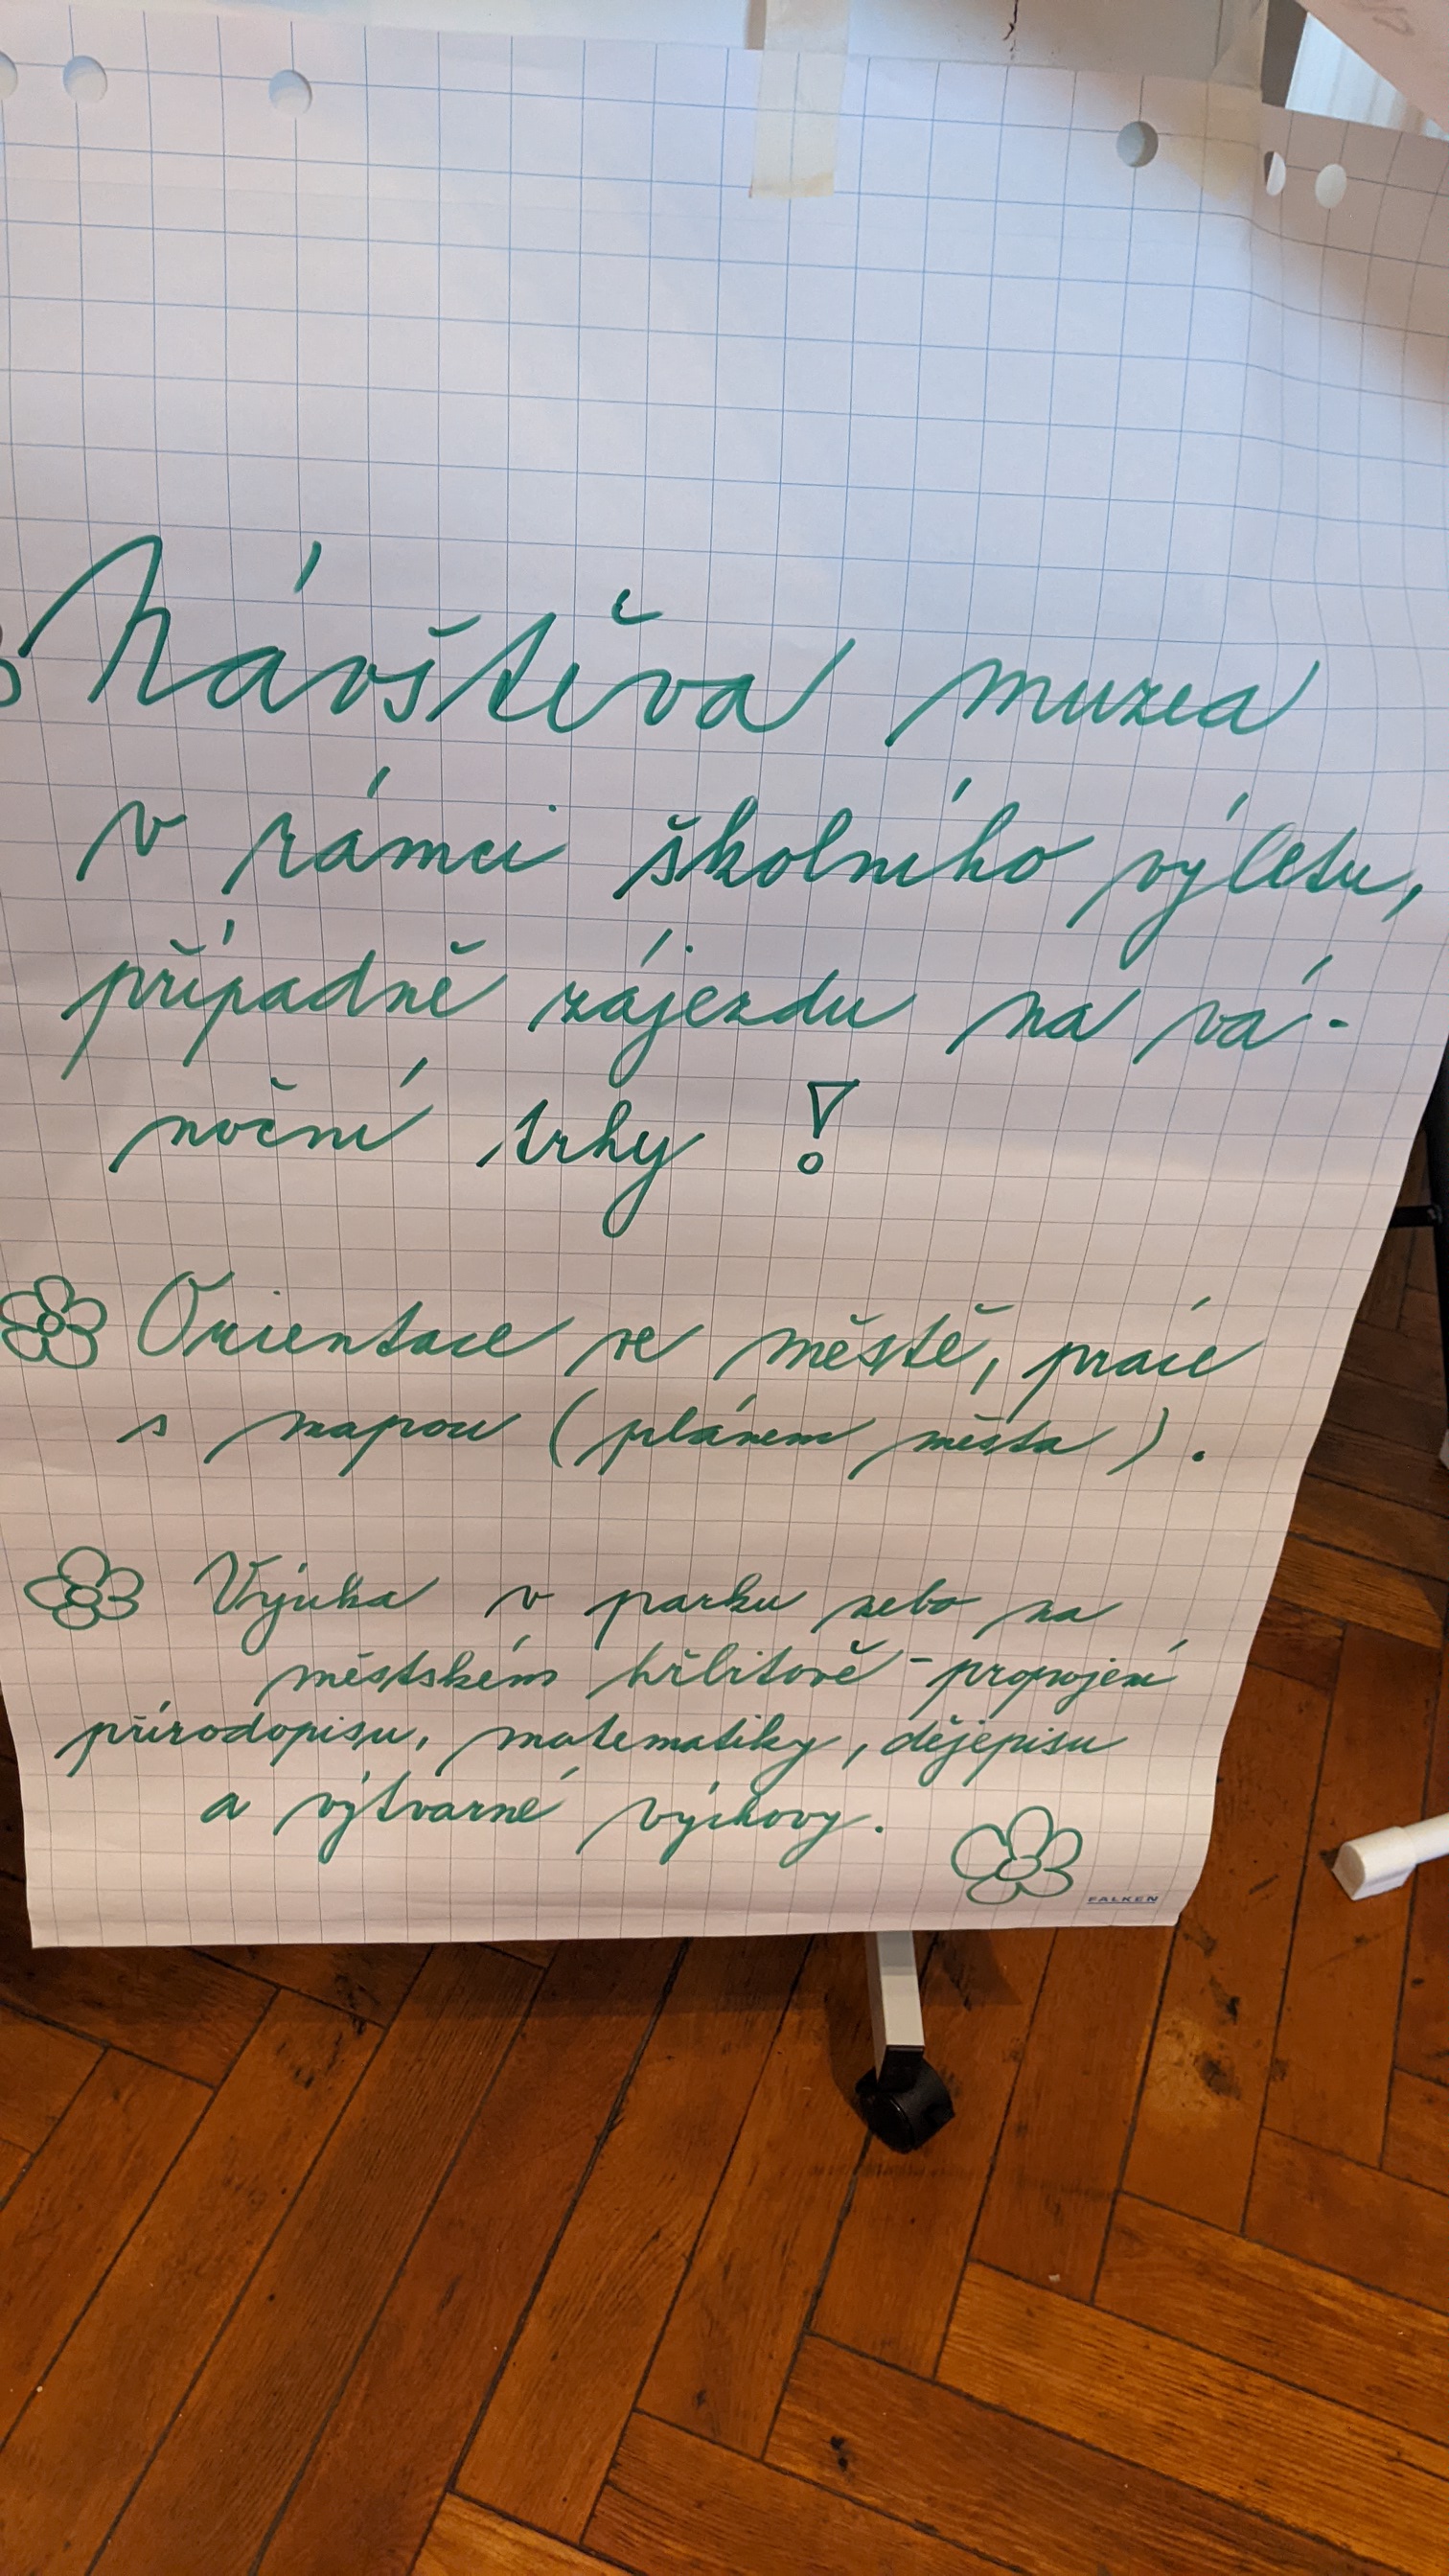 Návštěva muzea
v rámci školního výletu,
případně zájezdu na vá-
noční trhy!
Orientace ve městě, práce
s mapou (plánem města).
Výuka v parku nebo na
městském hřbitově - propojení
přírodopisu, matematiky, dějepisu
a výtvarné výchovy.
FALKEN